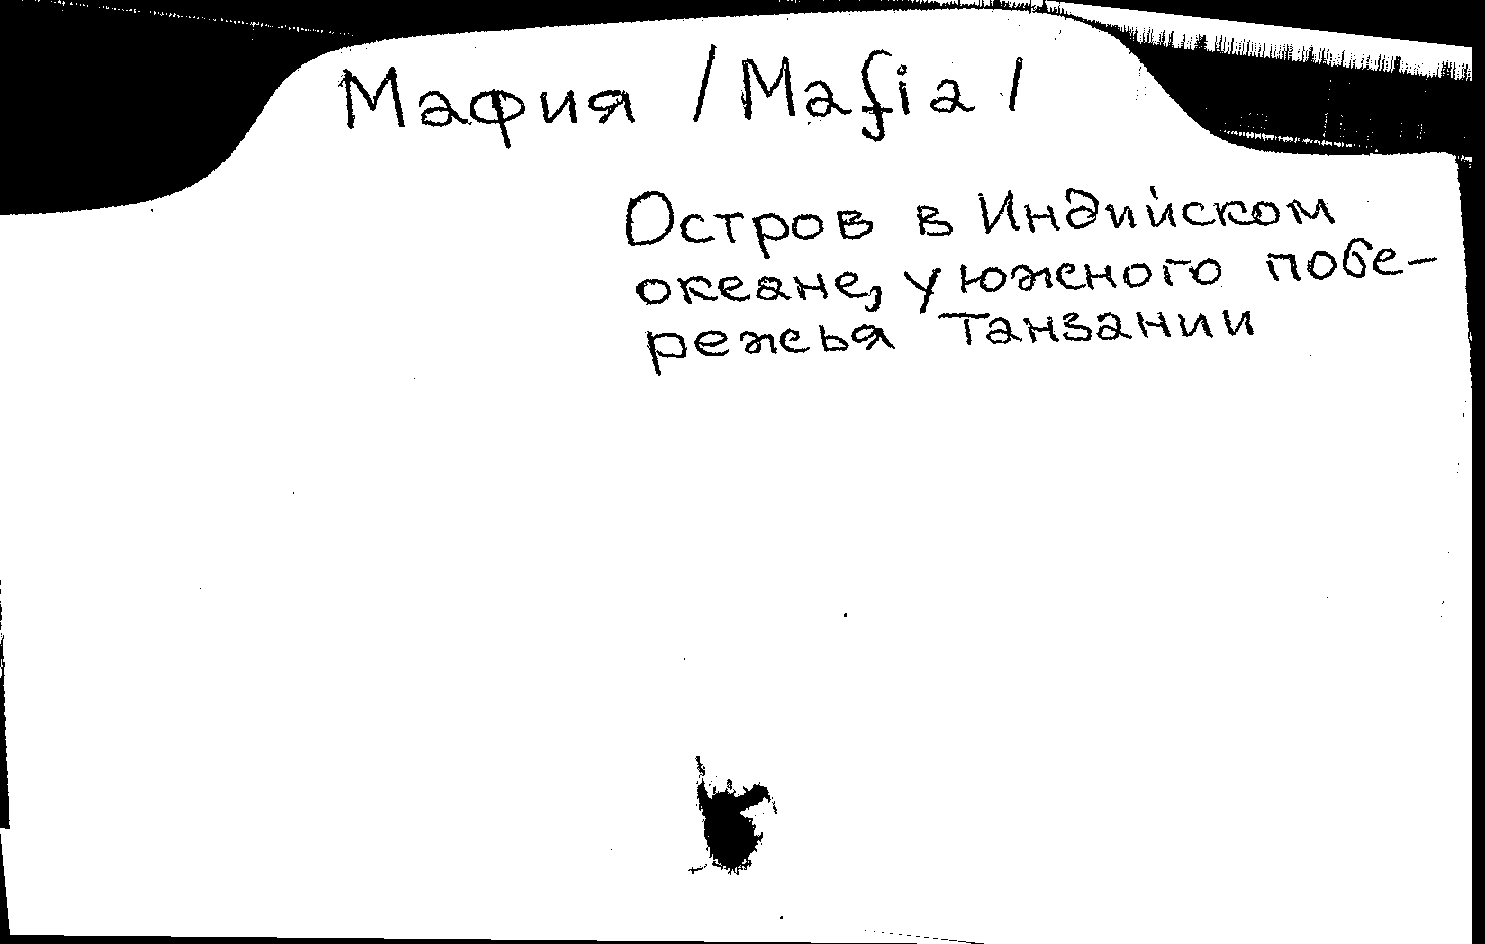 Мафия /Mafia/
Остров в Индийском
океане, у южного побе-
режья Танзании